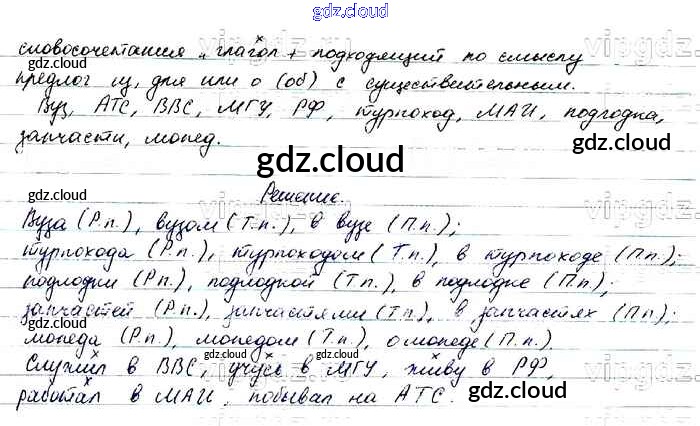 gdz.cloud
словосочетания „глагол + подходящий по смыслу
предлог из, для или о (об) с существительным.
Вуз, АТС, ВВС, МГУ, РФ, турпоход, МАИ, подлодка,
запчасти, мопед.
gdz.cloud
Решение.
Вуза (Р.п.), вузом (Т.п.), в вузе (П.п.);
турпохода (Р.п.), турпоходом (Т.п.), в турпоходе (П.п.);
подлодки (Р.п.), подлодкой (Т.п.), в подлодке (П.п.);
запчастей (Р.п.), запчастями (Т.п.), в запчастях (П.п.);
мопеда (Р.п.), мопедом (Т.п.), о мопеде (П.п.)
Служил в ВВС, учусь в МГУ, живу в РФ,
работал в МАИ, побывал на АТС.